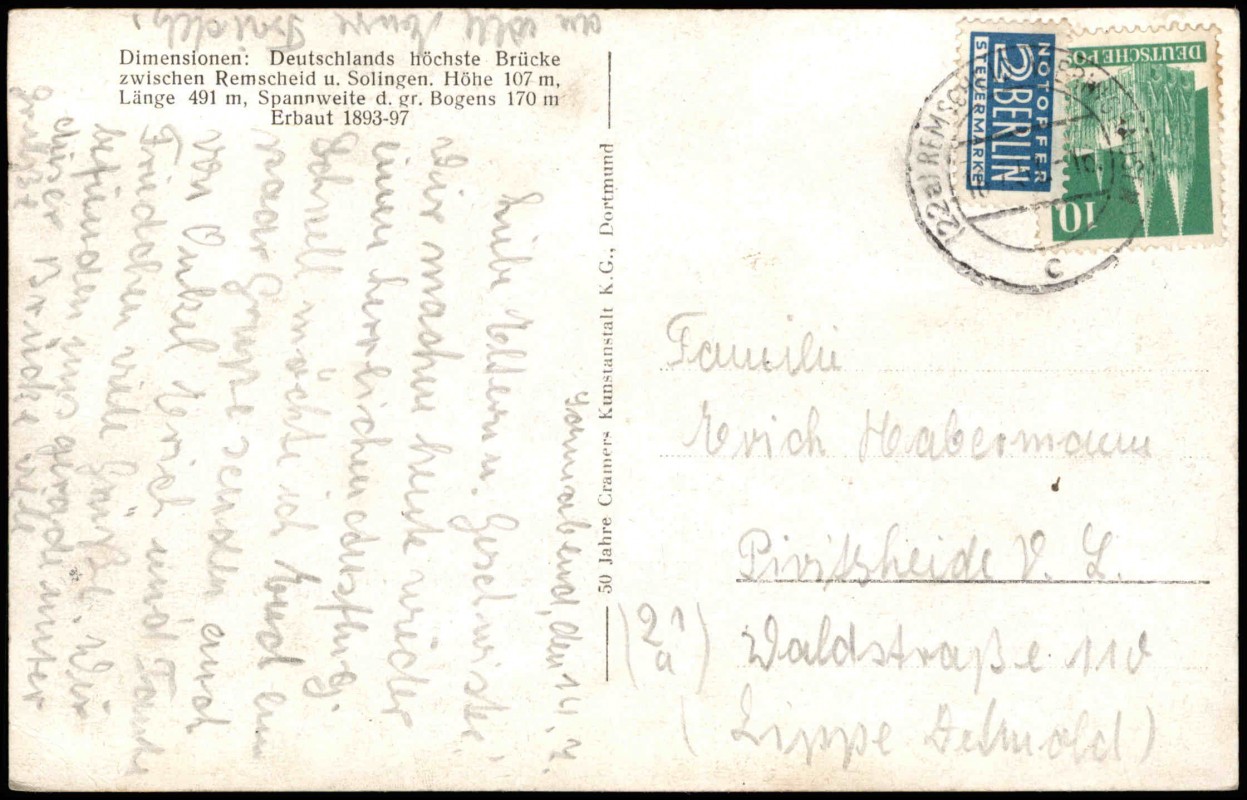 Dimensionen: Deutschlands höchste Brücke
zwischen Remscheid u. Solingen. Höhe 107 m,
Länge 491 m, Spannweite d. gr. Bogens 170 m
Erbaut 1893-97
50 Jahre Cramers Kunstanstalt K.G., Dortmund
Sonnabend, den 14. 7.
Liebe Eltern u. Geschwister,
Wir machen heute wieder
einen herrlichen Ausflug.
Schnell möchte ich Euch ein
paar Grüße senden auch
von Onkel Erich und Tante
Friedchen viele Grüße. Wir
befinden uns gerade unter
dieser Brücke viele
Grüße
an alle Eure
NOTOPFER
2 BERLIN
STEUERMARKE
DEUTSCHE POST
10
(22a) REMSCH
c
Familie
Erich Habermann
Pivitsheide V. L.
(21a) Waldstraße 110
(Lippe Detmold)